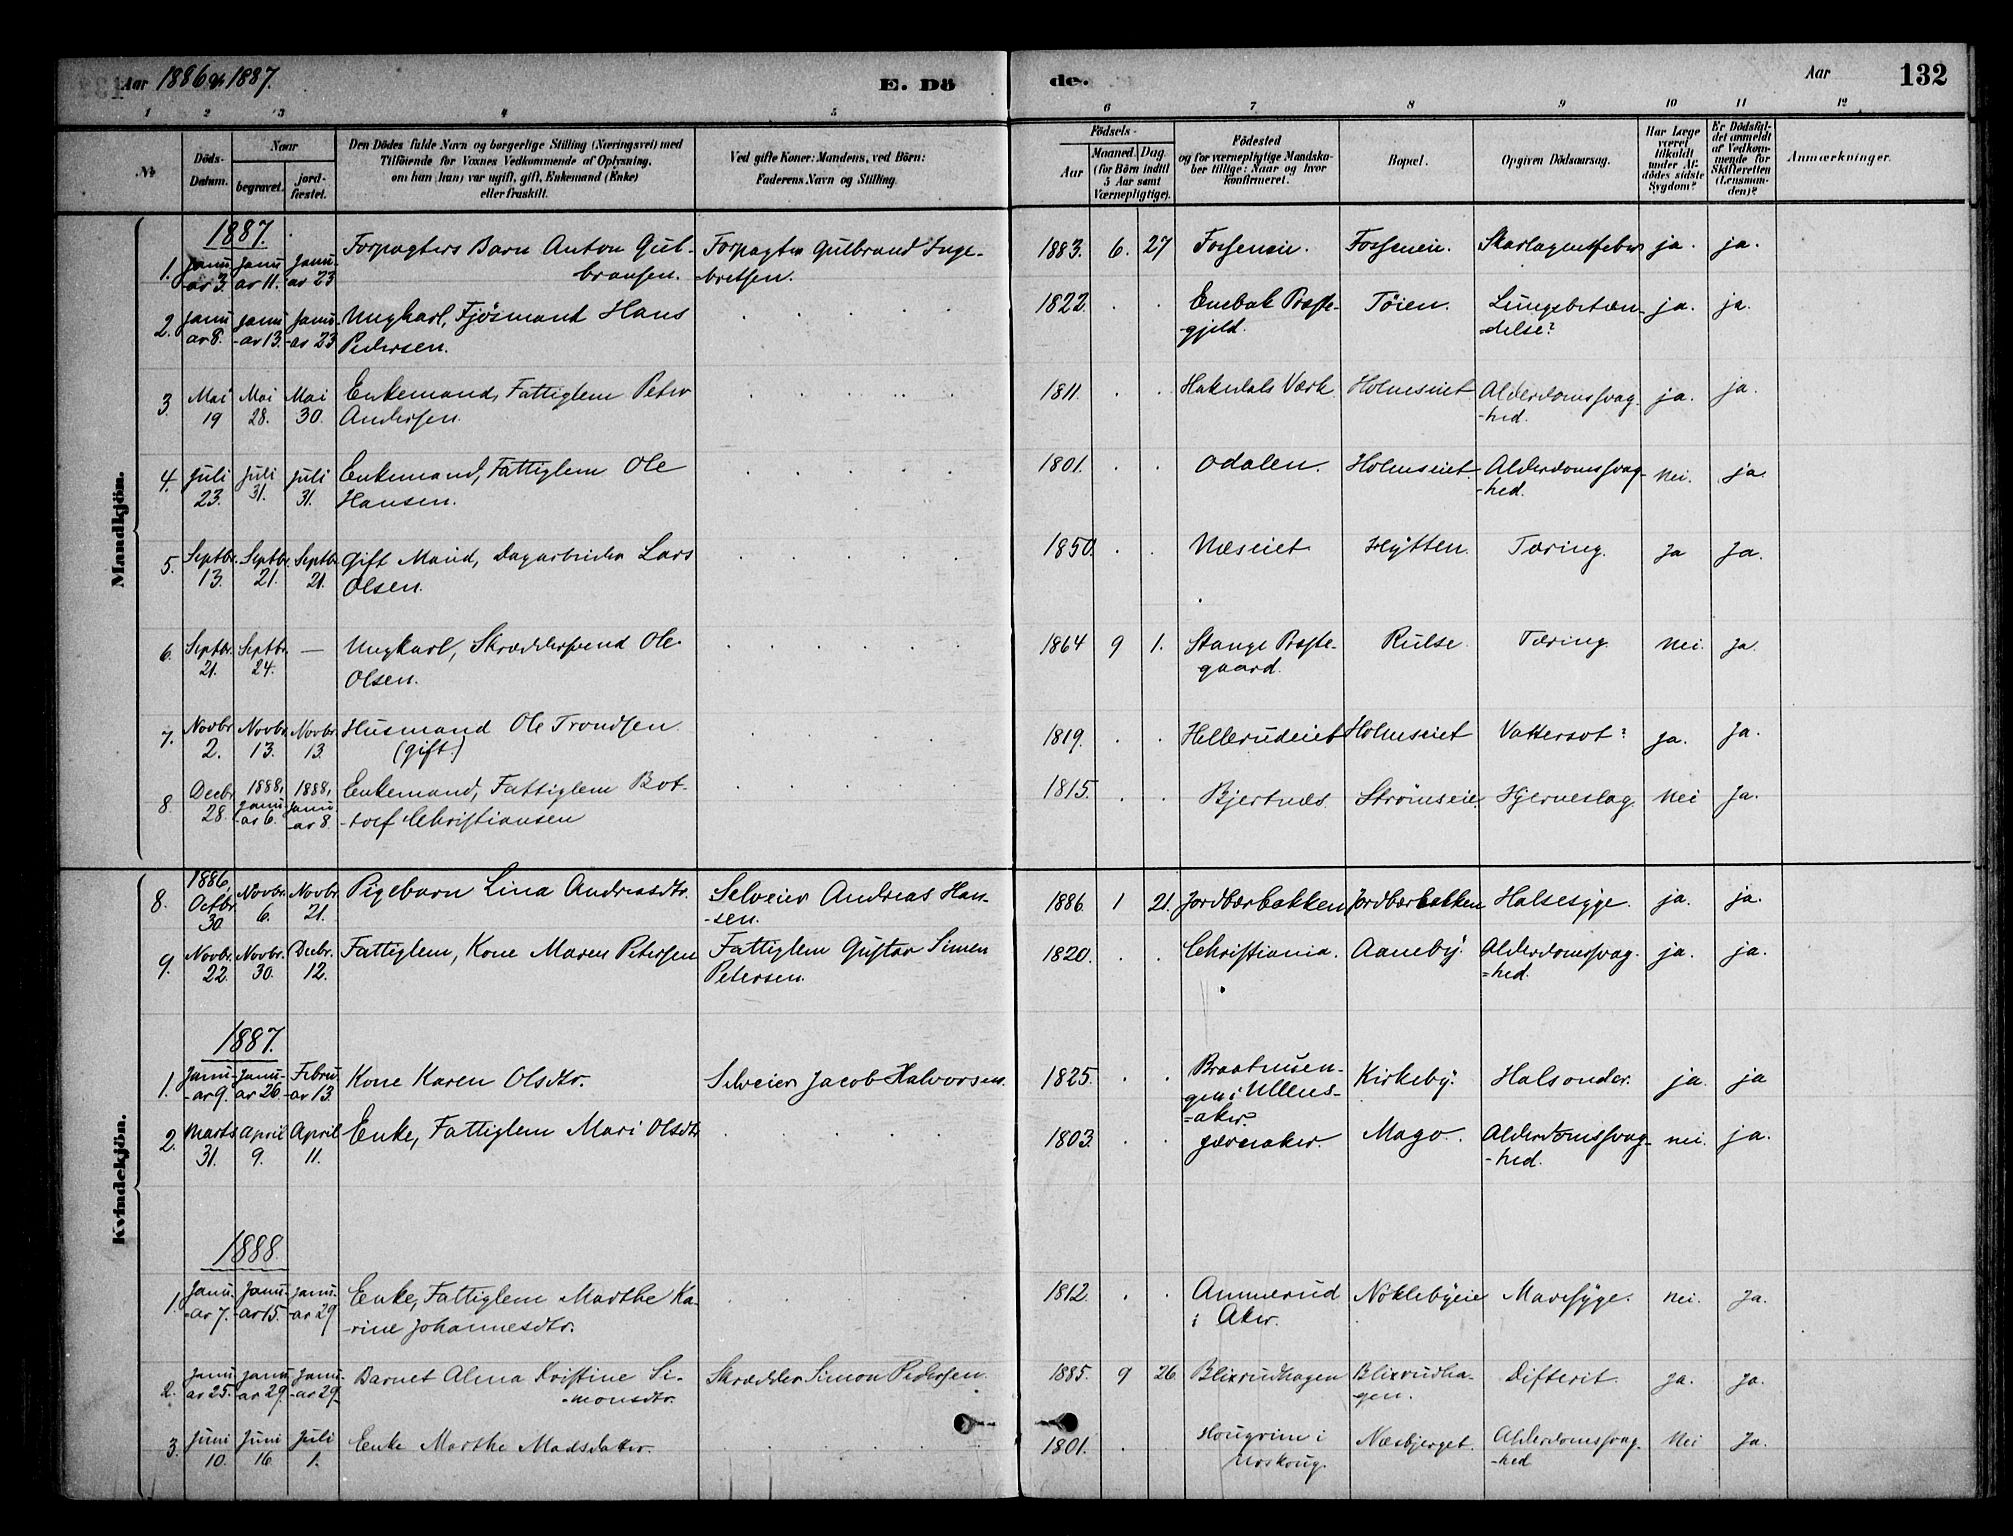 Aar 1886 og 1887.
E. Dö
de.
Aar
132
1 2 3 4 5 6 7 8 9 10 11 12
No
Döds-
Datum.
Naar
begravet.
jord-
fæstet.
Den Dödes fulde Navn og borgerlige Stilling (Næringsvei) med
Tilföiende for Voxnes Vedkommende af Oplysning,
om han (hun) var ugift, gift, Enkemand (Enke)
eller fraskilt.
Ved gifte Koner: Mandens, ved Börn:
Faderens Navn og Stilling.
Födsels-
Aar
Maaned. Dag.
(for Börn indtil
5 Aar samt
Værnepligtige).
Födested
og for værnepligtige Mandska-
ber tillige: Naar og hvor
konfirmeret.
Bopæl.
Opgiven Dödsaarsag.
Har Læge
været
tilkaldt
under Af-
dödes sidste
Sygdom?
Er Dödsfal-
det anmeldt
af Vedkom-
mende for
Skifteretten
(Lensman-
den)?
Anmærkninger.
Mandkjön.
1887.
1. Janu-ar 3. Janu-ar 11. Janu-ar 23 Forpagters Barn Anton Gul-
bransen. Forpagter Gulbrand Inge-
bretsen. 1883. 6. 27 Fosseneie. Fosseneie. Skarlagensfeber ja. ja.
2. Janu-ar 8. Janu-ar 13. Janu-ar 23 Ungkarl, Fjösmand Hans
Pedersen. 1822. Enebak Præste-
gjeld. Töien. Lungebetæn-
delse? ja. ja.
3. Mai 19 Mai 28. Mai 30. Enkemand, Fattiglem Peter
Andersen. 1811. Hakedals Værk Holmseiet Alderdomssvag-
hed. ja. ja.
4. Juli 23. Juli 31. Juli 31. Enkemand, Fattiglem Ole
Hansen. 1801. Odalen. Holmseiet. Alderdomssvag-
hed. nei. ja.
5. Septbr. 13. Septbr. 21. Septbr. 21. Gift Mand, Dagarbeider Lars
Olsen. 1850. Næseiet Hytten. Tæring. ja ja.
6. Septbr. 21. Septbr. 24. — Ungkarl, Skræddersvend Ole
Olsen. 1864 9 1. Stange Præste-
gaard. Rulse Tæring. nei. ja.
7. Novbr. 2. Novbr. 13. Novbr. 13 Husmand Ole Trondsen
(gift.) 1819. Hellerudeiet Holmseiet Vattersot? ja. ja.
8. Decbr. 28. 1888, Janu-ar 6. 1888, Janu-ar 8. Enkemand, Fattiglem Bot-
tolf Christiansen 1815. Bjertnæs Strömseie. Hjerneslag. nei ja.
Kvindekjön.
8. 1886, Octbr. 30. Novbr. 6. Novbr. 21. Pigebarn Lina Andreasdtr. Selveier Andreas Han-
sen. 1886. 1 21. Jordbærbakken Jordbærbakken Halsesyge. ja. ja.
9. Novbr. 22. Novbr. 30. Decbr. 12. Fattiglem, Kone Maren Petersen Fattiglem Gustav Simen
Petersen. 1820. Christiania. Aaneby. Alderdomssvag-
hed. ja. ja.
1887.
1. Janu-ar 9. Janu-ar 26. Febru-ar 13. Kone Karen Olsdtr. Selveier Jacob Halvorsen. 1825. Braatensen-
gen i Ullens-
aker. Kirkeby. Halsonder. ja. ja
2. Marts 31. April 9. April 11. Enke, Fattiglem Mari Olsdtr 1803. Jævnaker. Mago. Alderdomssvag-
hed. nei. ja.
1888.
1. Janu-ar 7. Janu-ar 15. Janu-ar 29 Enke, Fattiglem Marthe Ka-
rine Johannesdtr. 1812. Ammerud
i Aker. Nöklebyeie Mavesyge. nei. ja.
2. Janu-ar 25. Janu-ar 29. Janu-ar 29. Barnet Alma Kristine Si-
monsdtr. Skrædder Simon Pedersen. 1885. 9 26. Blixrudhagen Blixrudha-
gen. Difterit. ja. ja.
3. Juni 10. Juni 16 Juli 1. Enke Marthe Madsdatter. 1801. i
Urskoug. Næsbjerget. Alderdomssvag-
hed nei ja.